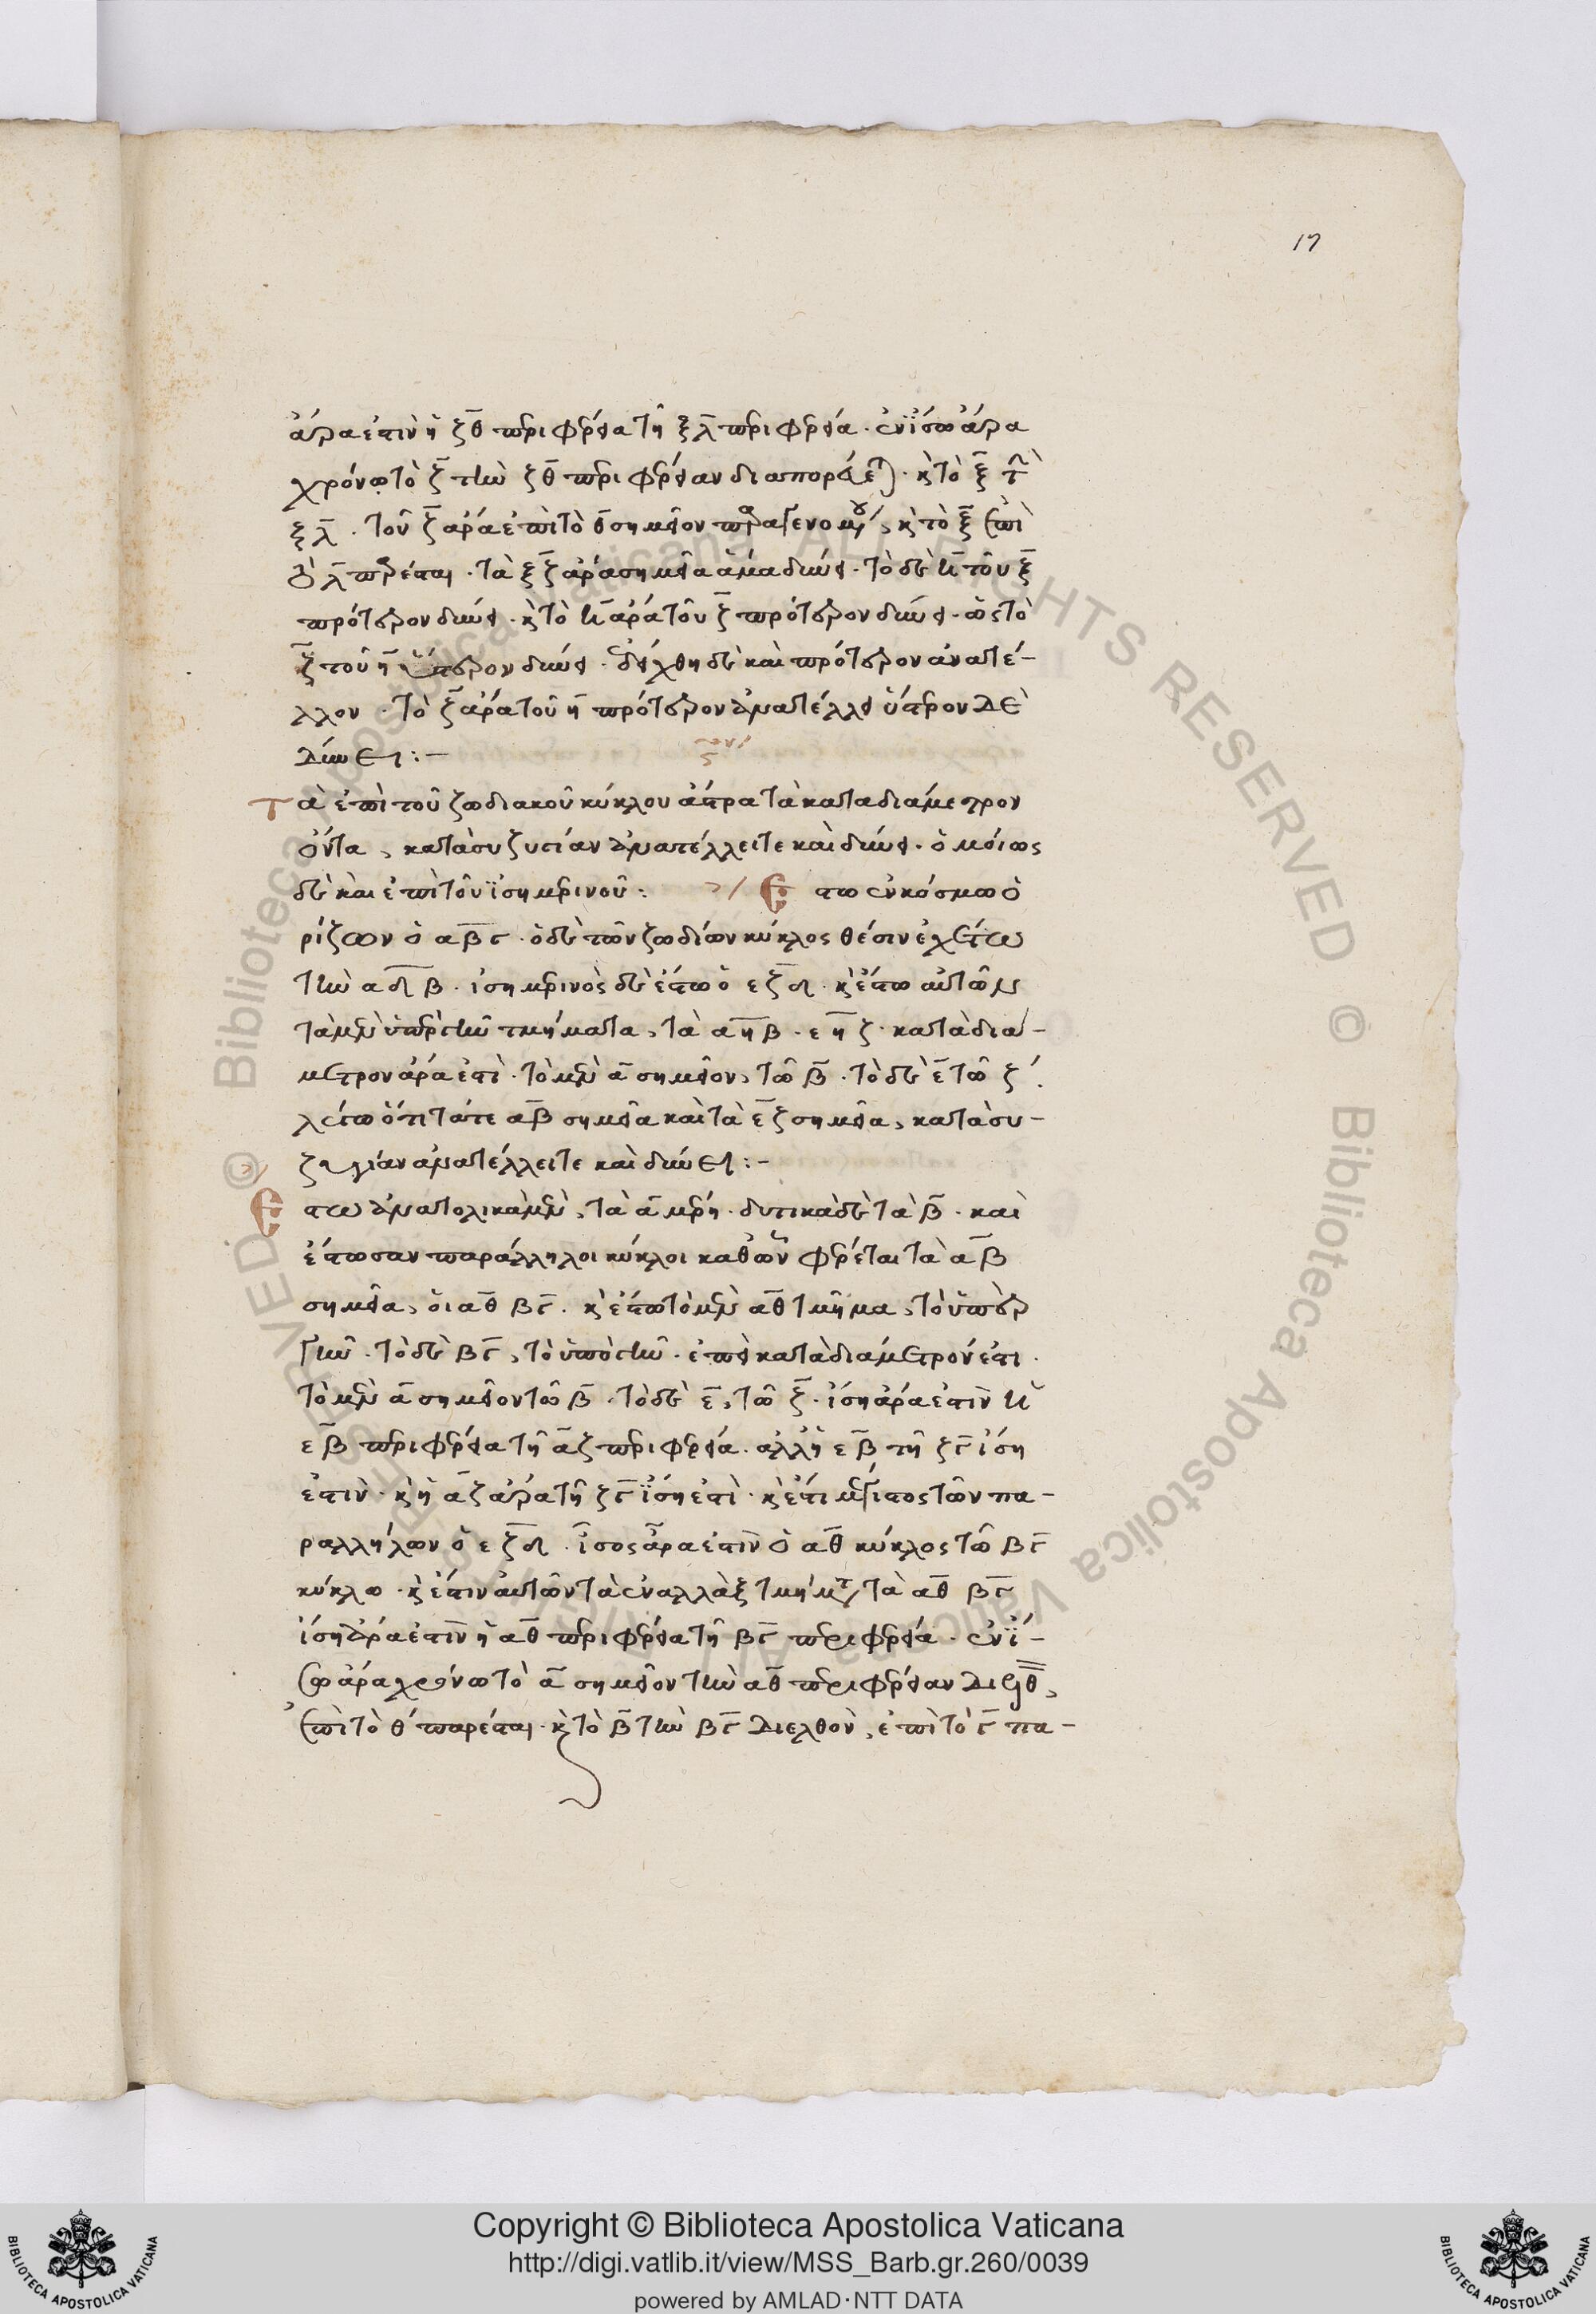 17
ἄρα ἐστὶν ἡ ζθ περιφέρεια τῇ ξλ περιφερεία. ἐν ἴσω ἄρα
χρόνω τὸ ζ τὴν ζθ περιφέρειαν διαπορεύεται. κ τὸ ξ τὴν
ξλ. τοῦ ζ ἄρα ἐπὶ τὸ θ σημεῖον παραγενομένου, κ τὸ ξ ἐπὶ
τὸ λ παρέσται. τὰ ξζ ἄρα σημεῖα ἅμα δύνει. τὸ δὲ η τοῦ ξ
πρότερον δύνει. κ τὸ η ἄρα τοῦ ζ πρότερον δύνει. ὥστε τὸ
ζ τοῦ η ὕστερον δύνει. ἐδείχθη δὲ καὶ πρότερον ἀνατέ-
λλον. τὸ ζ ἄρα τοῦ η πρότερον ἀνατέλλει ὕστερον δὲ
δύνει:-
Τὰ ἐπὶ τοῦ ζωδιακοῦ κύκλου ἄστρα τὰ κατὰ διάμετρον
ὄντα, κατὰ συζυγίαν ἀνατέλλει τε καὶ δύνει. ὁμοίως
δὲ καὶ ἐπὶ τοῦ ἰσημερινοῦ: Ἔστω ἐν κόσμω ὁ
ρίζων ὁ αβγ. ὁ δὲ τῶν ζωδίων κύκλος θέσιν ἐχέτω
τὴν αδβ. ἰσημερινὸς δὲ ἔστω ὁ εζδ. κ ἔστω αὐτῶν
τὰ μὲν ὑπὲρ γῆν τμήματα, τὰ αηβ. εηζ. κατὰ διά-
μετρον ἄρα ἐστὶ. τὸ μὲν α σημεῖον, τῶ β. τὸ δὲ ε τῶ ζ.
λέγω ὅτι τά τε αβ σημεῖα καὶ τὰ εζ σημεῖα, κατὰ συ-
ζυγίαν ἀνατέλλει τε καὶ δύνει:-
Ἔστω ἀνατολικὰ μὲν, τὰ α μέρη. δυτικὰ δὲ τὰ β. καὶ
ἔστωσαν παράλληλοι κύκλοι καθ' ὧν φέρεται τὰ αβ
σημεῖα, οἱ αθ βγ. κ ἔστω τὸ μὲν αθ τμῆμα, τὸ ὑπὲρ
γῆν. τὸ δὲ βγ, τὸ ὑπὸ γῆν. ἐπεὶ κατὰ διάμετρόν ἐστι.
τὸ μὲν α σημεῖον τῶ β. τὸ δὲ ε, τῶ ζ. ἴση ἄρα ἐστὶν ἡ
εβ περιφέρεια τῇ αζ περιφερεία. ἀλλ' ἡ εβ τῇ ζγ ἴση
ἐστὶν. κ ἡ αζ ἄρα τῇ ζγ ἴση ἐστὶ. κ ἔστι μέγιστος τῶν πα-
ραλλήλων ὁ εζδ. ἴσος ἄρα ἐστὶν ὁ αθ κύκλος τῶ βγ
κύκλω. κ ἔστιν αὐτῶν τὰ ἐναλλὰξ τμήματα τὰ αθ βγ
ἴση ἄρα ἐστὶν ἡ αθ περιφέρεια τῇ βγ περιφερεία. ἐν ἴ-
σω ἄρα χρόνω τὸ α σημεῖον τὴν αθ περιφέρειαν διελθὸν,
ἐπὶ τὸ θ παρέσται. κ τὸ β τὴν βγ διελθὸν, ἐπὶ τὸ γ πα-
Copyright © Biblioteca Apostolica Vaticana
http://digi.vatlib.it/view/MSS_Barb.gr.260/0039
powered by AMLAD·NTT DATA